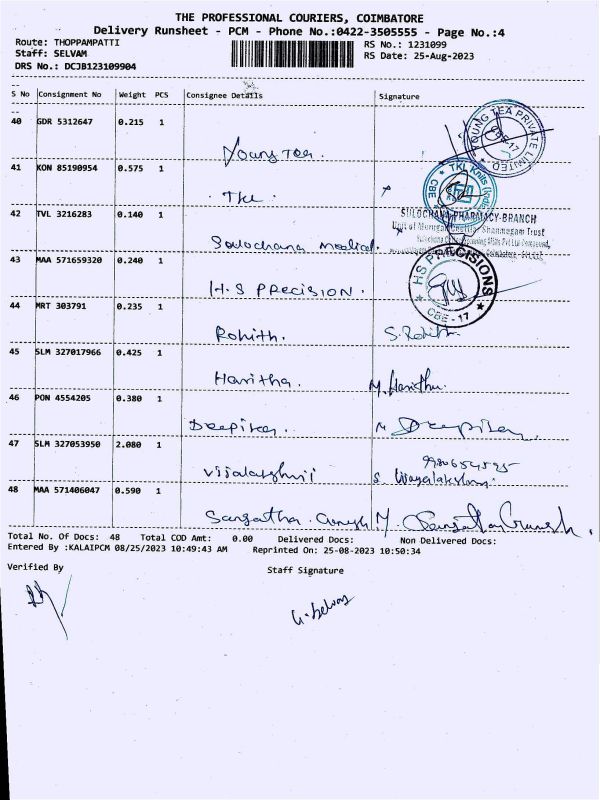 THE PROFESSIONAL COURIERS, COIMBATORE
Delivery Runsheet - PCM - Phone No.:0422-3505555 - Page No.:4
Route: THOPPAMPATTI RS No.: 1231099
Staff: SELVAM RS Date: 25-Aug-2023
DRS No.: DCJB123109904
S No Consignment No Weight PCS Consignee Details Signature
40 GDR 5312647 0.215 1
Young Tea.
YOUNG TEA PRIVATE LIMITED
41 KON 85190954 0.575 1
TKL
TKL Knits CBE
42 TVL 3216283 0.140 1
Sulochana medical.
SULOCHANA PHARMACY-BRANCH
Shanmugam Trust
43 MAA 571659320 0.240 1
H.S PRECISION.
HS PRECISIONS CBE-17
44 MRT 303791 0.235 1
Rohith. S. Rohith
45 SLM 327017966 0.425 1
Haritha. M. Haritha.
46 PON 4554205 0.380 1
Deepika. Deepika
47 SLM 327053950 2.080 1
Vijalakshmi S. Vijayalakshmi
48 MAA 571406047 0.590 1
Sangatha
Total No. Of Docs: 48 Total COD Amt: 0.00 Delivered Docs: Non Delivered Docs:
Entered By :KALAIPCM 08/25/2023 10:49:43 AM Reprinted On: 25-08-2023 10:50:34
Verified By Staff Signature
G. Selvam